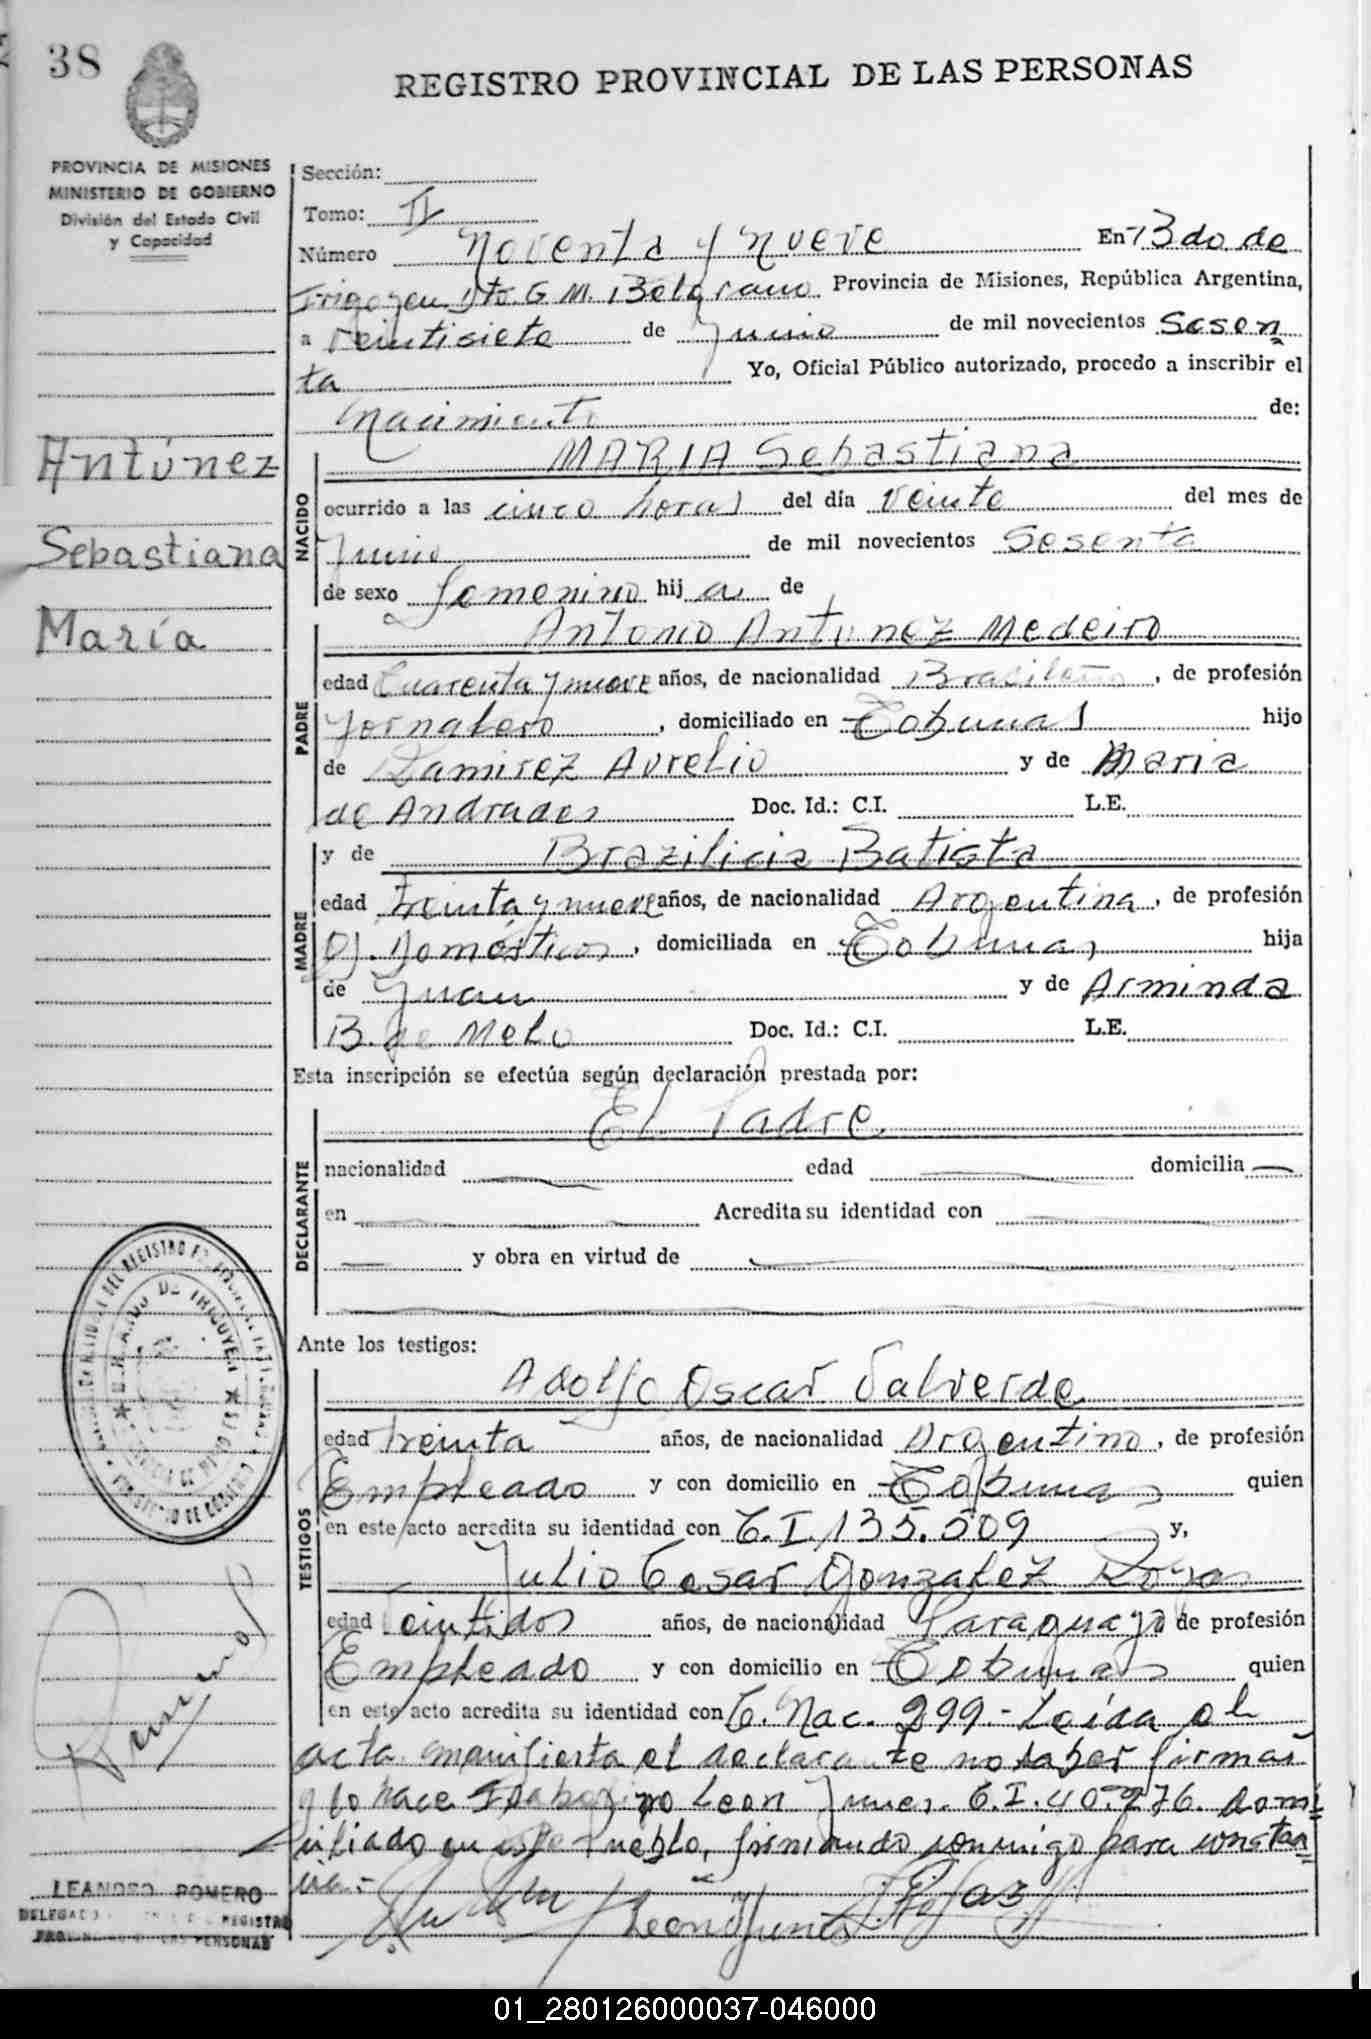 38
REGISTRO PROVINCIAL DE LAS PERSONAS
PROVINCIA DE MISIONES
MINISTERIO DE GOBIERNO
División del Estado Civil
y Capacidad
Antúnez
Sebastiana
María
Sección:
Tomo: II
Número Noventa y nueve En Bdo de
Irigoyen Dto. G M. Belgrano Provincia de Misiones, República Argentina,
a veintisiete de Junio de mil novecientos Sesen
ta Yo, Oficial Público autorizado, procedo a inscribir el
Nacimiento de:
NACIDO
MARIA Sebastiana
ocurrido a las cinco horas del día veinte del mes de
Junio de mil novecientos Sesenta
de sexo femenino hij a de
PADRE
Antonio Antunez Medeiro
edad Cuarenta y nueve años, de nacionalidad Brasileño, de profesión
Jornalero, domiciliado en Tobunas hijo
de Ramirez Aurelio y de Maria
de Andrades Doc. Id.: C.I. L.E.
MADRE
y de Brazilicia Batista
edad treinta y nueve años, de nacionalidad Argentina, de profesión
Q. Domésticos, domiciliada en Tobunas hija
de Juan y de Arminda
B. de Melo Doc. Id.: C.I. L.E.
Esta inscripción se efectúa según declaración prestada por:
DECLARANTE
El Padre
nacionalidad edad domicilia
en Acredita su identidad con
y obra en virtud de
Ante los testigos:
TESTIGOS
Adolfo Oscar Valverde
edad Treinta años, de nacionalidad Argentino, de profesión
Empleado y con domicilio en Tobunas quien
en este acto acredita su identidad con C.I. 135.509 y,
Julio Cesar Gonzalez Rojas
edad Veintidos años, de nacionalidad Paraguayo de profesión
Empleado y con domicilio en Tobunas quien
en este acto acredita su identidad con C. Nac. 299.- Leída el
acta manifiesta el declarante no saber firmar
y lo hace Leon Junes. C.I. 40.276. domi
ciliado en este Pueblo, firmando conmigo para constan
cia.-
Leon Junes
Rojas
LEANDRO ROMERO
DELEGADO REGISTRO
PROVINCIAL DE LAS PERSONAS
01_280126000037-046000